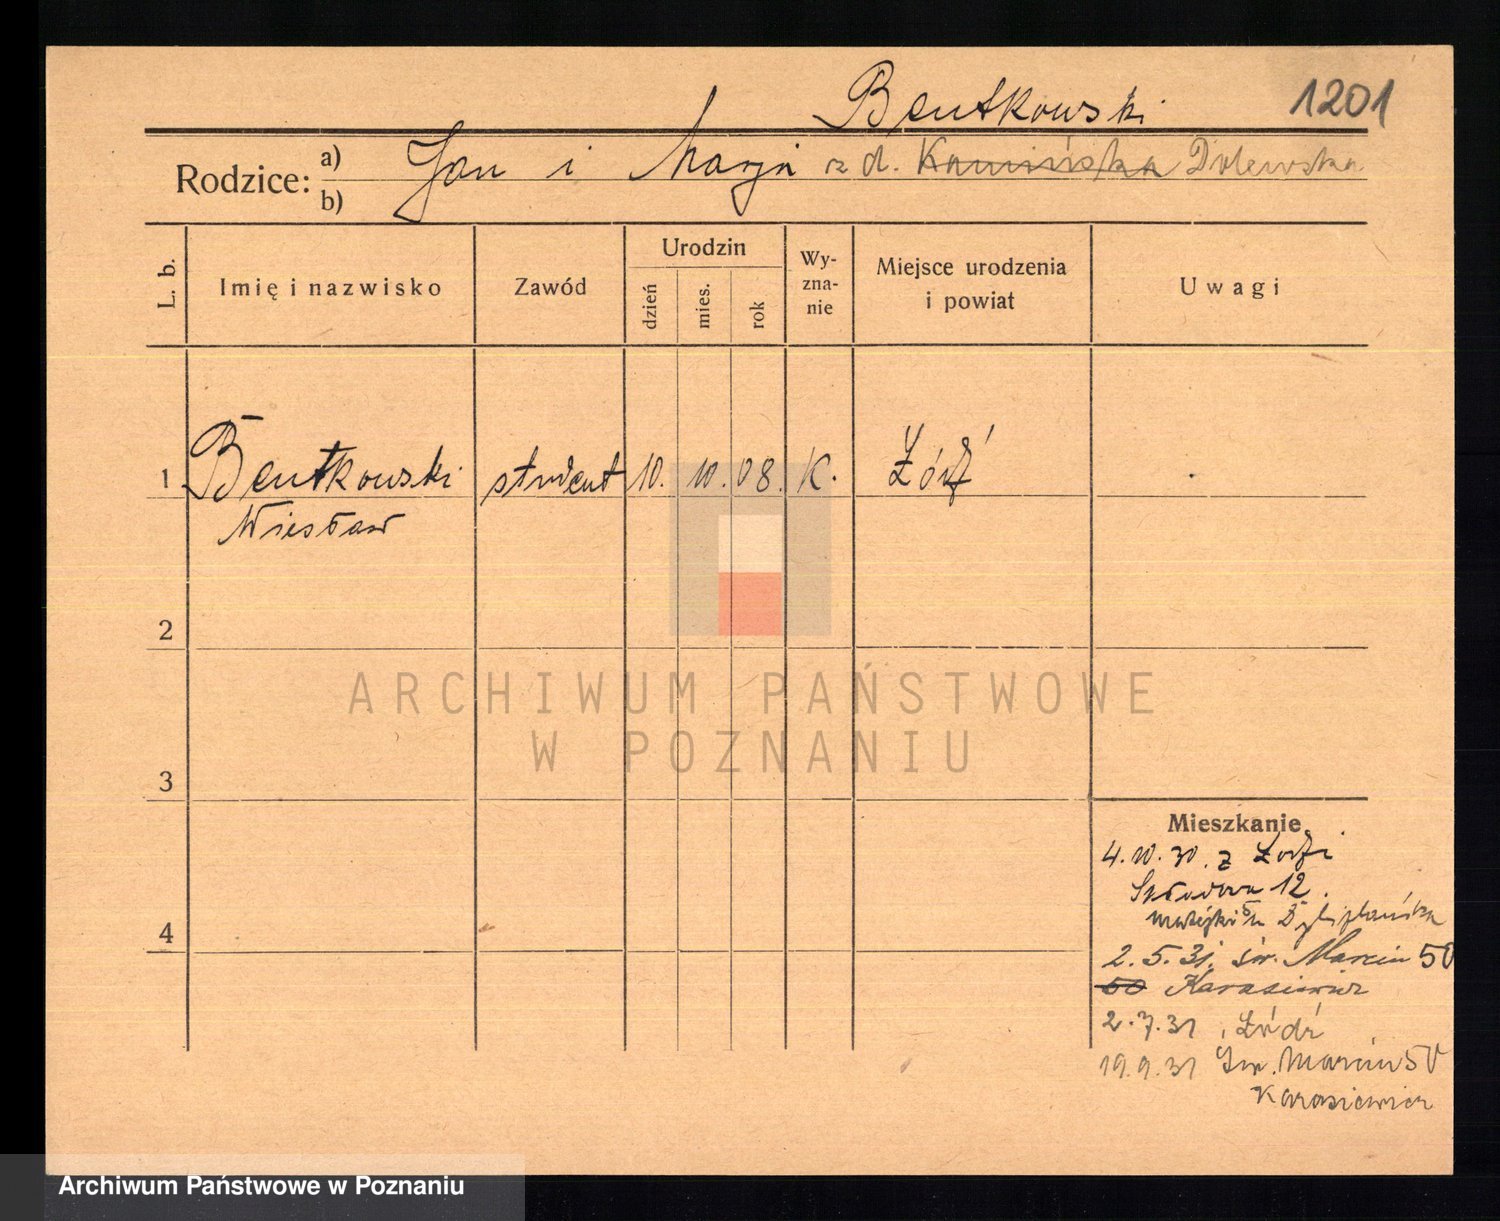 1201
Bentkowski
Rodzice: a) b) Jan i Marja z d. Kamińska Dolewska
L. b.
Imię i nazwisko
Zawód
Urodzin
dzień
mies.
rok
Wy-
zna-
nie
Miejsce urodzenia
i powiat
Uwagi
1 Bentkowski student 10. 10. 08. K. Łódź
Wiesław
2
3
4
ARCHIWUM PAŃSTWOWE
W POZNANIU
Mieszkanie
4.10.30. z Łodzi
12.
2.5.31. św. Marcin 50
50 Karasiewicz
2.7.31, Łódź
19.9.31 Św. Marcin 50
Karasiewicz
Archiwum Państwowe w Poznaniu